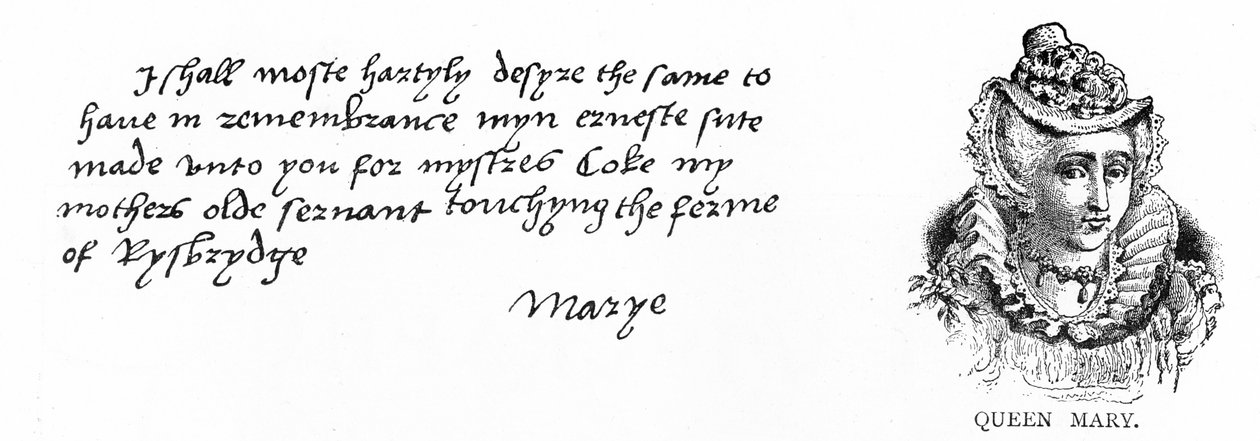 I shall moste hartyly desyre the same to
haue in remembrance myn erneste sute
made vnto you for mystres Coke my
mothers olde seruant touchyng the ferme
of Rysbrydge
Marye
QUEEN MARY.